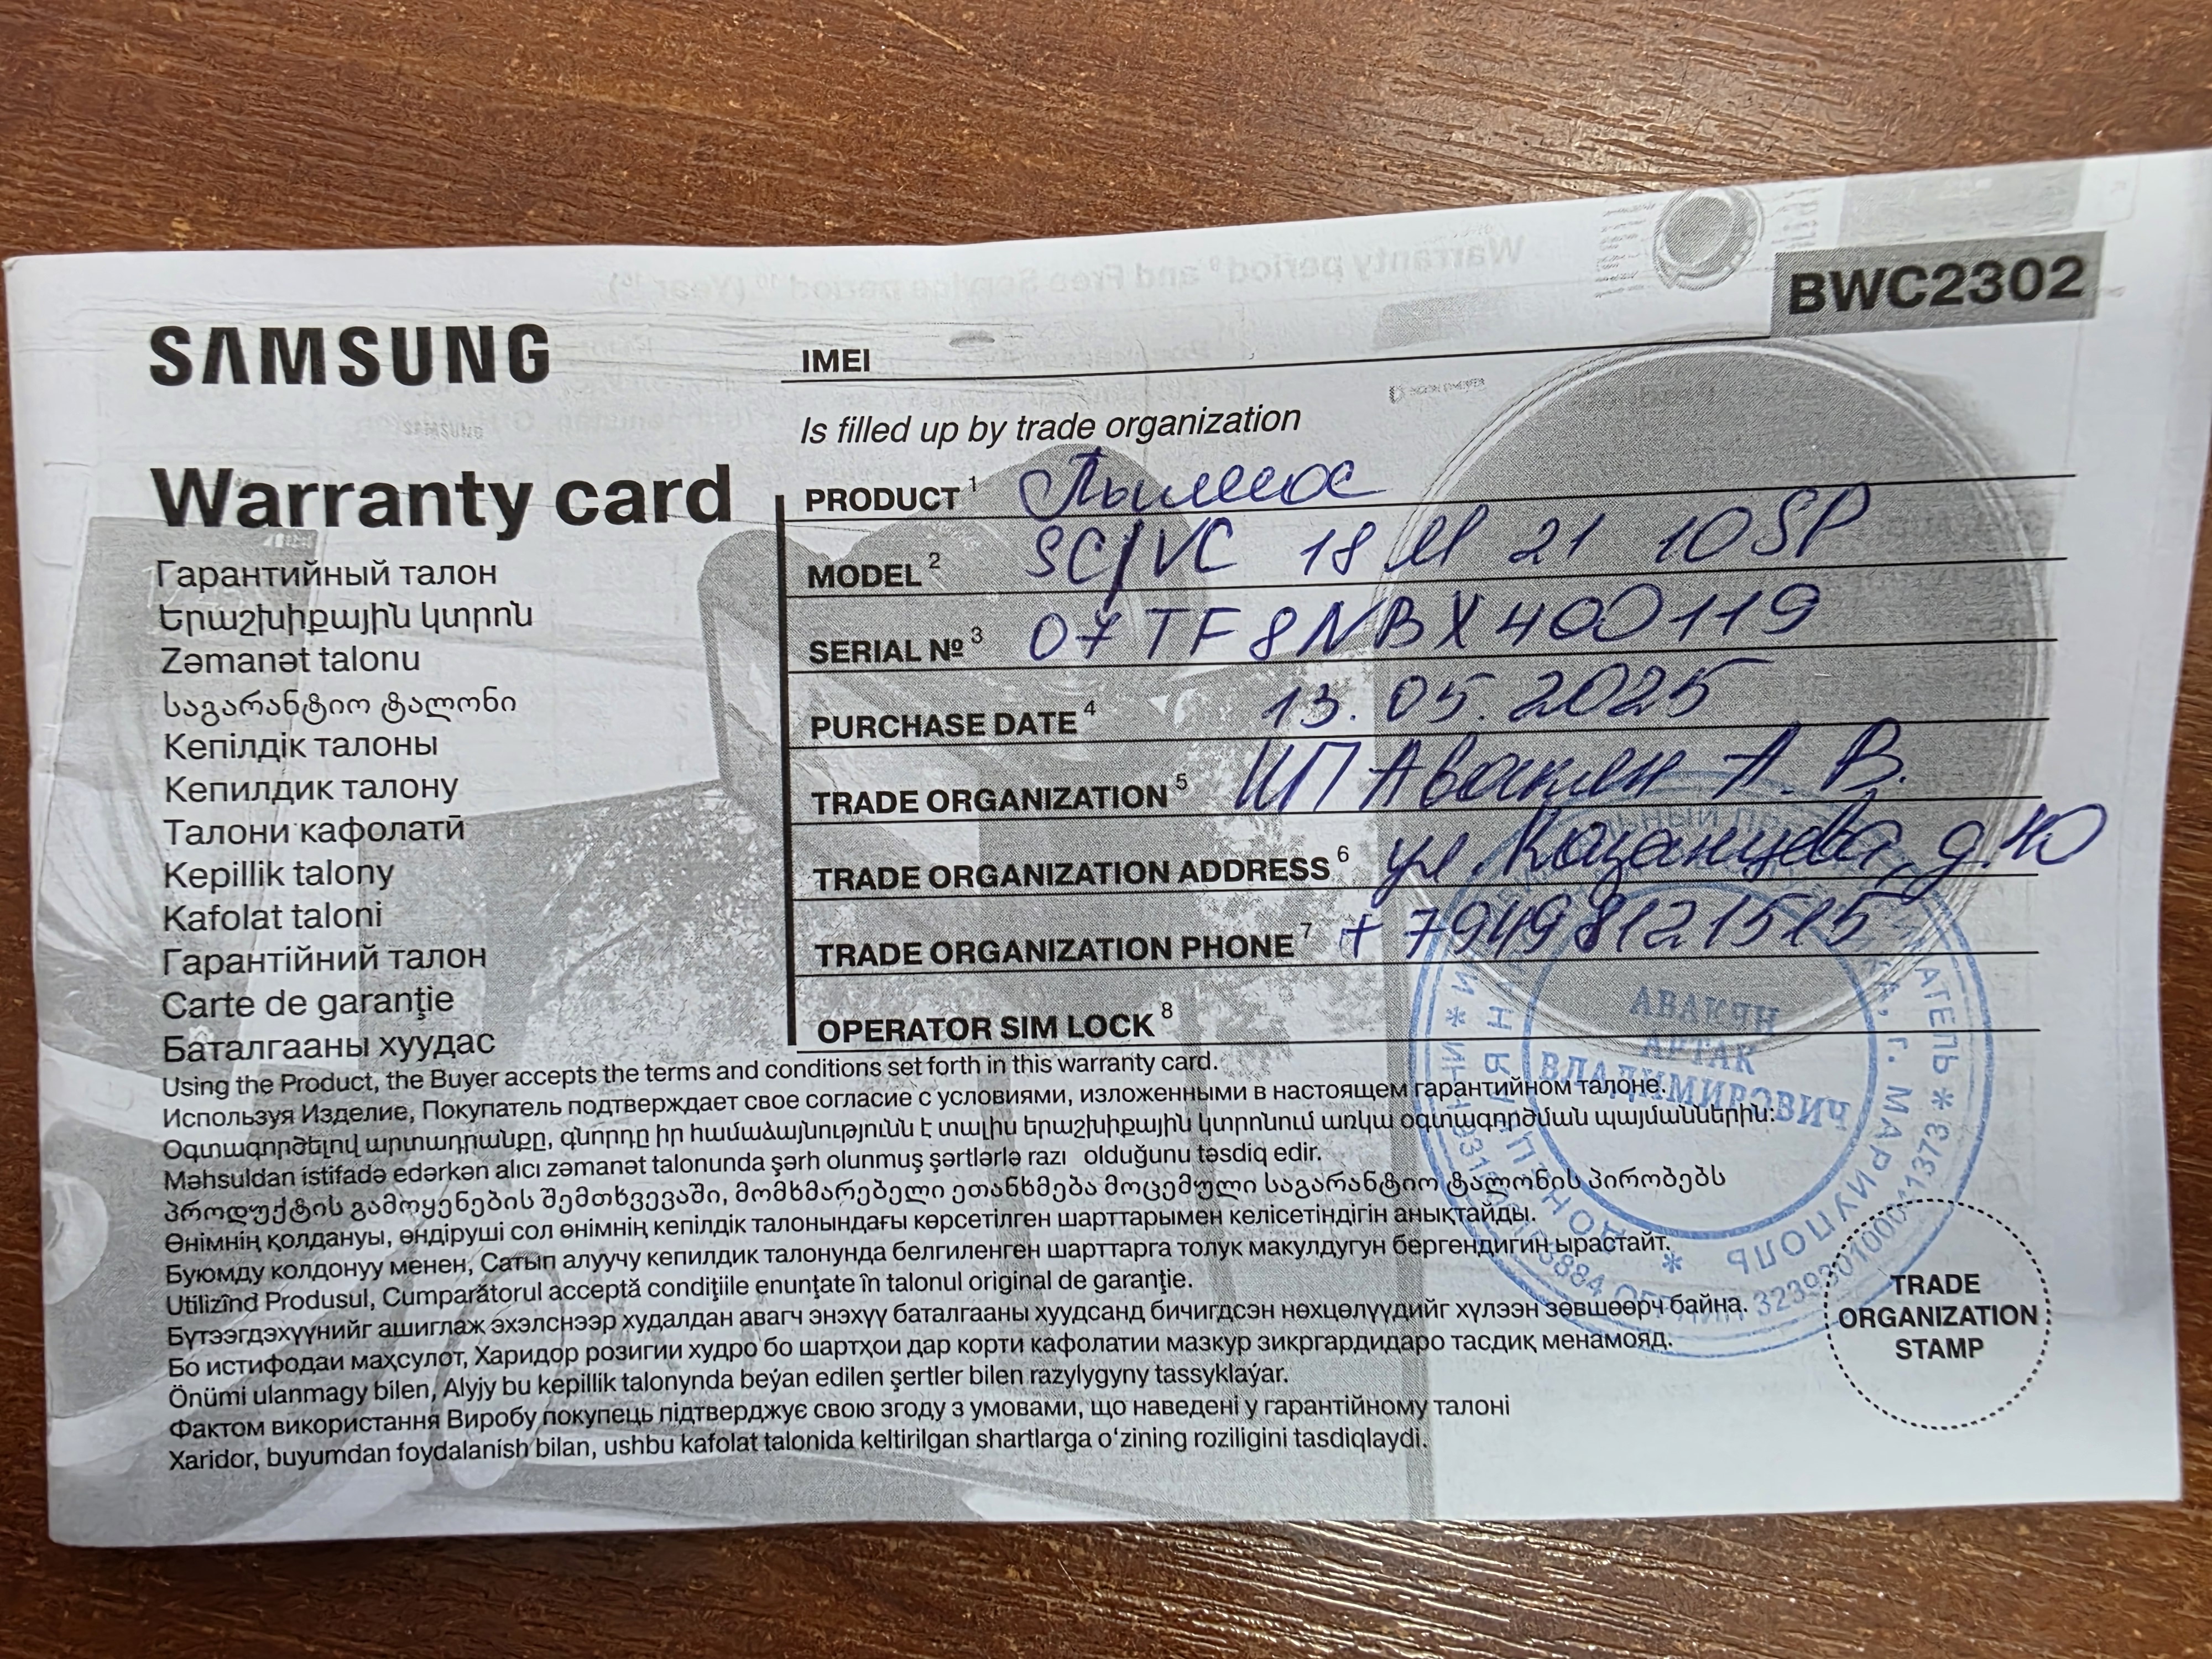 BWC2302
SAMSUNG
Warranty card
Гарантийный талон
Երաշխիքային կտրոն
Zəmanət talonu
საგარანტიო ტალონი
Кепілдік талоны
Кепилдик талону
Талони кафолатӣ
Kepillik talony
Kafolat taloni
Гарантійний талон
Carte de garanţie
Баталгааны хуудас
IMEI
Is filled up by trade organization
PRODUCT 1 Пылесос
MODEL 2 SC/VC 18 M 21 10 SP
SERIAL № 3 07TF8NBX400119
PURCHASE DATE 4 13.05.2025
TRADE ORGANIZATION 5 ИП Авакян А. В.
TRADE ORGANIZATION ADDRESS 6 ул. Казанцева, д. 10
TRADE ORGANIZATION PHONE 7
OPERATOR SIM LOCK 8
Using the Product, the Buyer accepts the terms and conditions set forth in this warranty card.
Используя Изделие, Покупатель подтверждает свое согласие с условиями, изложенными в настоящем гарантийном талоне.
Օգտագործելով արտադրանքը, գնորդը իր համաձայնությունն է տալիս երաշխիքային կտրոնում առկա օգտագործման պայմաններին:
Məhsuldan istifadə edərkən alıcı zəmanət talonunda şərh olunmuş şərtlərlə razı olduğunu təsdiq edir.
პროდუქტის გამოყენების შემთხვევაში, მომხმარებელი ეთანხმება მოცემული საგარანტიო ტალონის პირობებს
Өнімнің қолдануы, өндіруші сол өнімнің кепілдік талонындағы көрсетілген шарттарымен келісетіндігін анықтайды.
Буюмду колдонуу менен, Сатып алуучу кепилдик талонунда белгиленген шарттарга толук макулдугун бергендигин ырастайт.
Utilizînd Produsul, Cumparătorul acceptă condiţiile enunţate în talonul original de garanţie.
Бүтээгдэхүүнийг ашиглаж эхэлснээр худалдан авагч энэхүү баталгааны хуудсанд бичигдсэн нөхцөлүүдийг хүлээн зөвшөөрч байна.
Бо истифодаи маҳсулот, Харидор розигии худро бо шартҳои дар корти кафолатии мазкур зикргардидаро тасдиқ менамояд.
Önümi ulanmagy bilen, Alyjy bu kepillik talonynda beýan edilen şertler bilen razylygyny tassyklaýar.
Фактом використання Виробу покупець підтверджує свою згоду з умовами, що наведені у гарантійному талоні
Xaridor, buyumdan foydalanish bilan, ushbu kafolat talonida keltirilgan shartlarga o‘zining roziligini tasdiqlaydi.
АВАКЯН
АРТАК
ВЛАДИМИРОВИЧ
Г. МАРИУПОЛЬ
TRADE
ORGANIZATION
STAMP